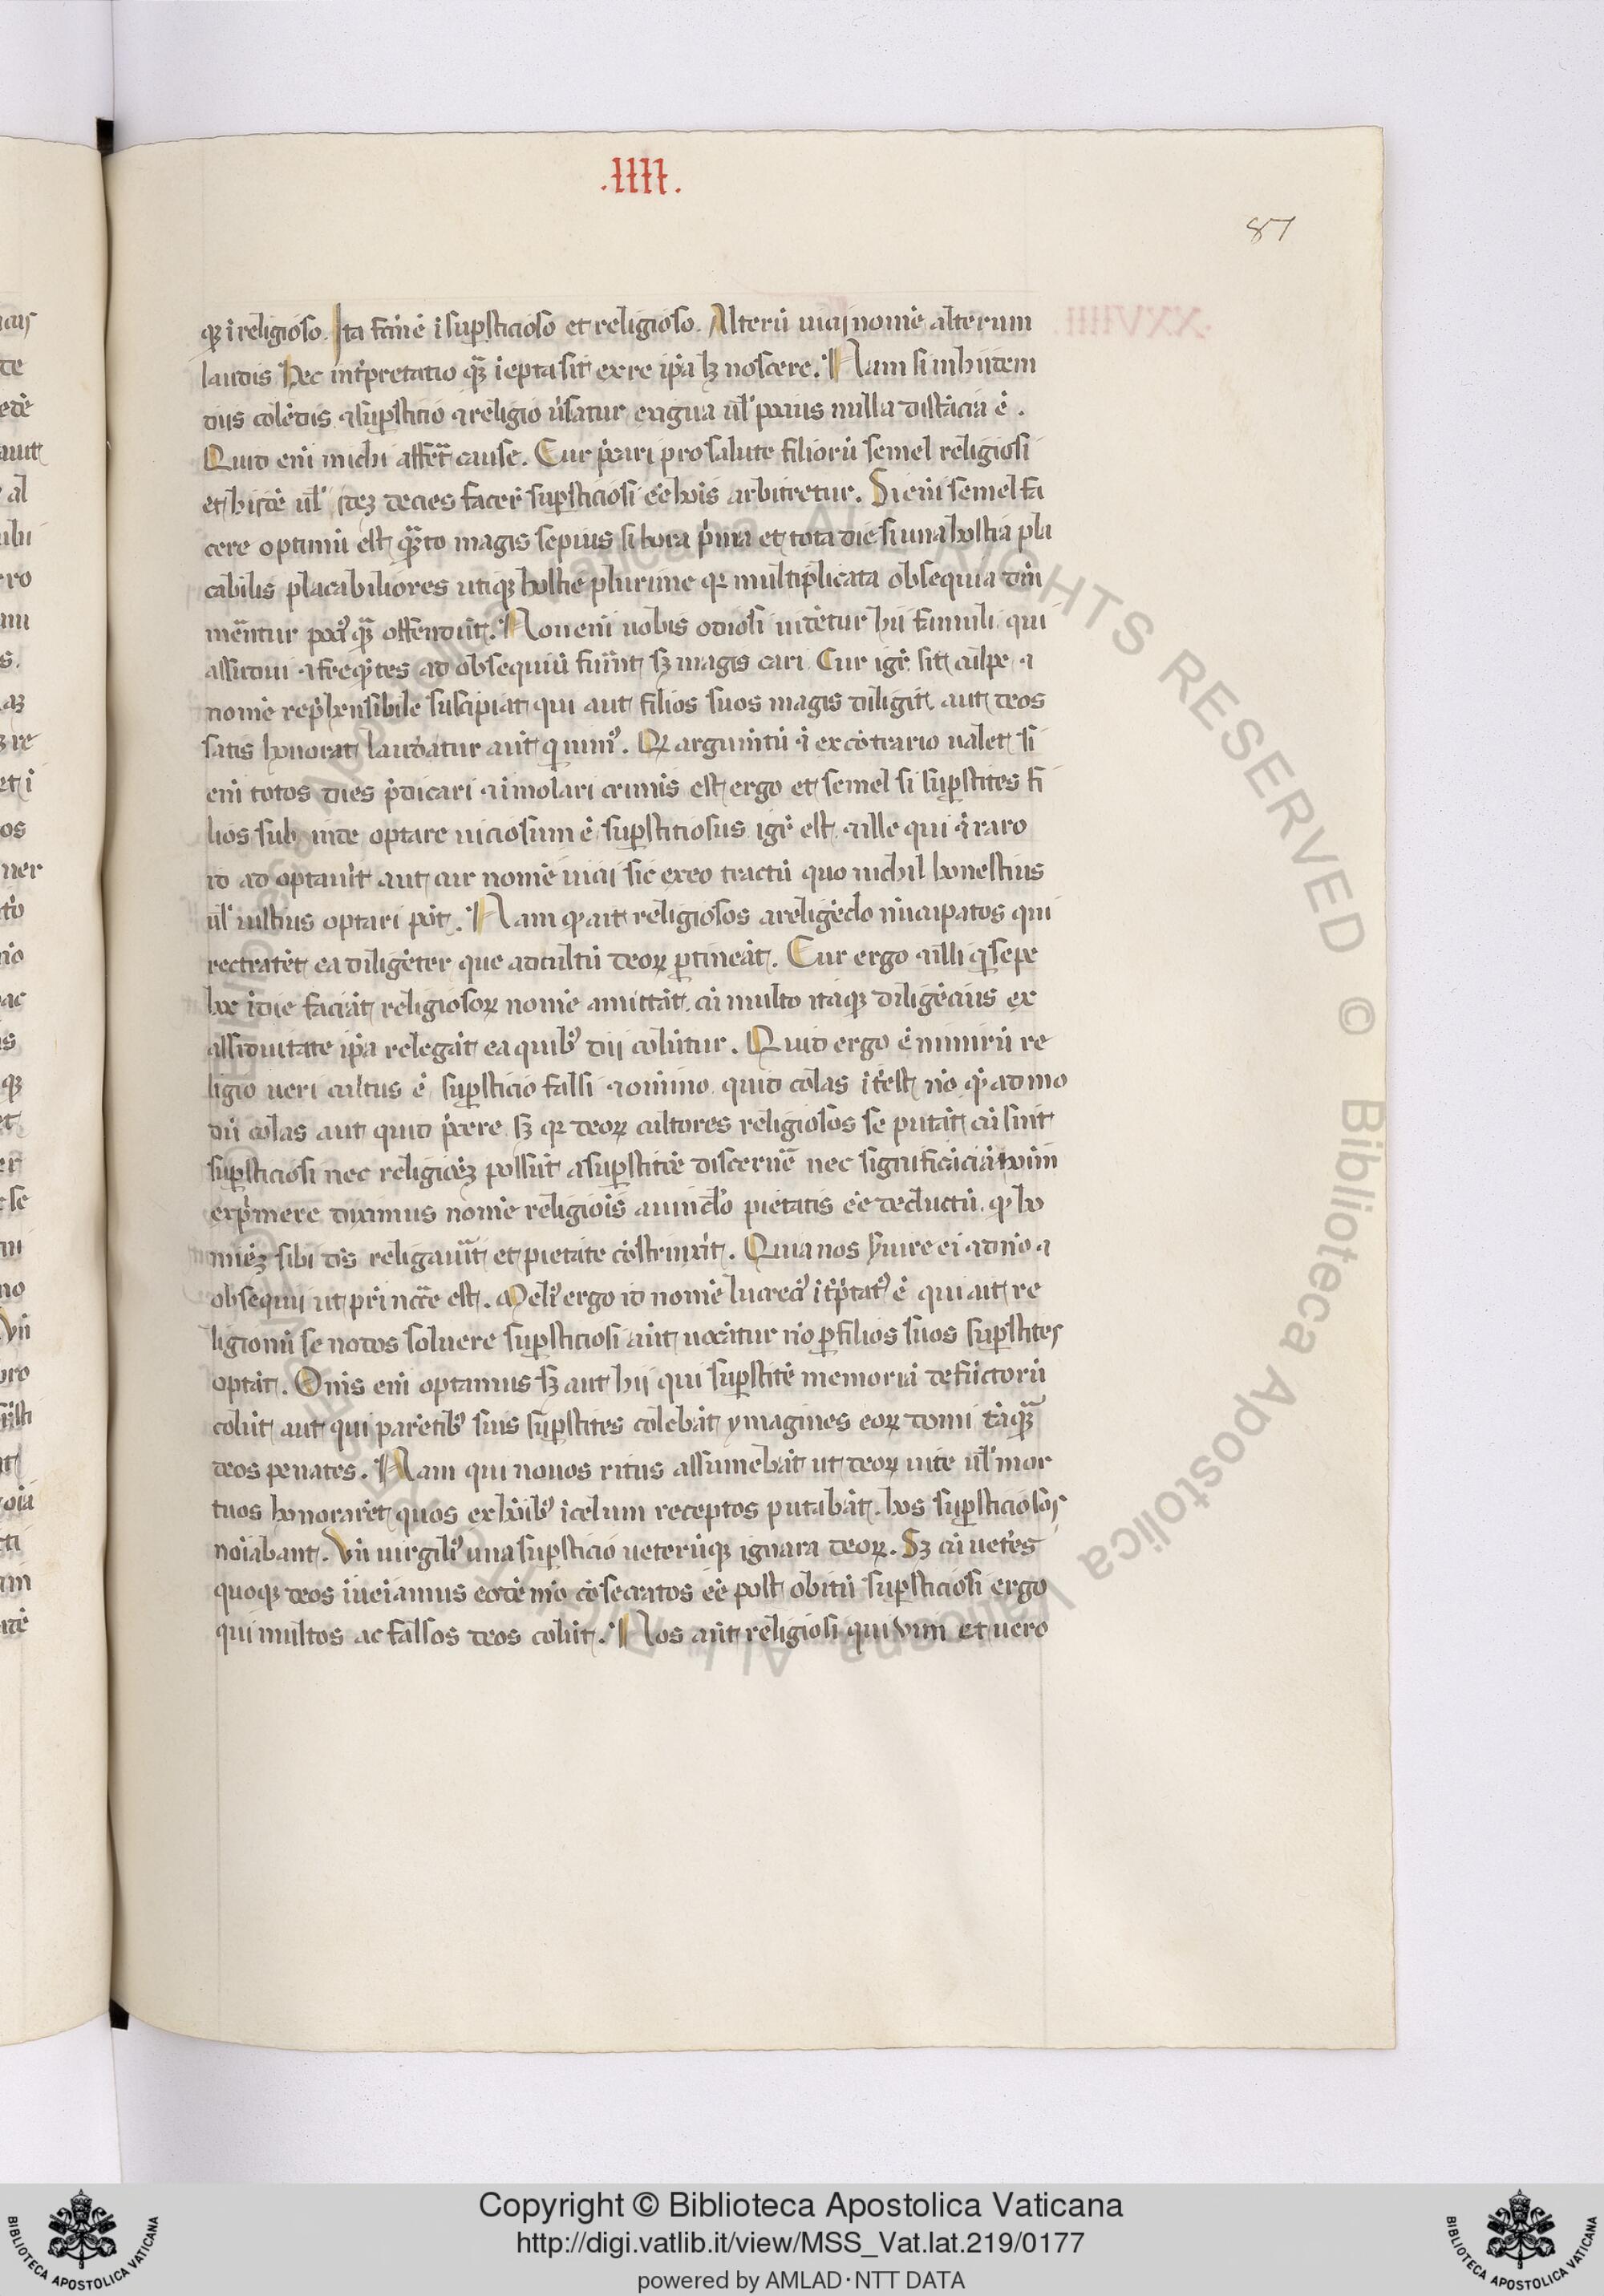 .IIII.
87
qꝫ ī religioso. Ita fcm̄ ē ī suꝑsticioso et religioso. Alterū uicij nomē alterum
laudis Hec int̄pretatio qꝫ īepta sit ex re ip̄a lꝫ noscere. Nam si in hiisdem
diis colēdis ⁊ suꝑsticio ⁊ religio ūsatur exigua ul̄ pocius nulla distācia ē.
Quid eni michi affet̄ cause. Cur p̄cari pro salute filiorū semel religiosi
et hͥ idē ul̄ idez decies facer̄ suꝑsticiosi eē hoīs arbitretur. Si eni semel fa
cere optimū est qͣto magis sepius si hora pͥma et tota die si una hostia pla
cabilis placabiliores utiqꝫ hostie plurime qꝛ multiplicata obsequia dm̄
mēntur pociꝰ qͣ offendūt. Non eni nobis odiosi uidētur hii famuli qui
assidui ⁊ freqͥntes ad obsequiū fuīnt sꝫ magis cari Cur igr̄ sit culpe ⁊
nomē rep̄hensibile suscipiat qui aut filios suos magis diligit aut deos
satis honorat laudatur aūt qui minꝰ. Qꝛ argumtū ⁊ ī ex cōtrario ualet si
eni totos dies p̄dicari ⁊ īmolari crimīs est ergo et semel si suꝑstites fi
lios sub inde optare uiciosum ē suꝑsticiosus igr̄ est ⁊ ille qui ⁊ raro
id ad optauit aut cur nomē uicij sic ex eo tractū quo nichil honestius
ul̄ iustius optari pōt. Nam qͦ ait religiosos a religēdo nūcupatos qui
rectratēt ea diligēter que ad cultū deoꝝ ꝑtineāt. Cur ergo ⁊ illi qui sepe
hoc ī die faciāt religiosoꝝ nomē amittāt cū multo itaqꝫ diligēcius ex
assiduitate ip̄a relegāt ea quibꝰ dii colūtur. Quid ergo ē nimirū re
ligio ueri cultus ē suꝑsticio falsi ⁊ omnino quid colas īt̄est nō qͣ ad mo
dū colas aut quid p̄cere sꝫ qꝛ deoꝝ cultores religiosos se putāt cū sint
suꝑsticiosi nec religioēꝫ possūt a suꝑstitōe discernē nec significāciā noīm
exp̄mere diximus nomē religiois̄ a uinclo pietatis eē deductū qͦ ho
mīeꝫ sibi ds̄ religauīt et pietate cōstrinxīt. Quia nos s̄uire ei ⁊ dn̄o ⁊
obsequii ut pr̄i nccē est. Meliꝰ ergo id nomē lucreciꝰ īt̄p̄tatꝰ ē qui ait re
ligionū se nodos soluere suꝑsticiosi aūt uocātur nō ꝑ filios suos suꝑstites
optāt. Om̄s eni optamus sꝫ aut hij qui suꝑstitē memoriā defūctorū
colūt aut qui parētibꝰ suis suꝑstites colebāt ymagines eoꝝ domi tāqͣ
deos penates. Nam qui nouos ritus assumebāt ut deoꝝ uice ul̄ mor
tuos honorarēt quos ex hoībꝰ ī celum receptos putabāt. hos suꝑsticiosos
noīabant. Vn̄ uirgiliꝰ una suꝑsticio ueterūqꝫ ignara deoꝝ. Sꝫ cū uetēs
quoqꝫ deos īueiamus eodē mō cōsecratos eē post obitū suꝑsticiosi ergo
qui multos ac falsos deos colūt. Nos aūt religiosi qui vni et uero
Copyright © Biblioteca Apostolica Vaticana
http://digi.vatlib.it/view/MSS_Vat.lat.219/0177
powered by AMLAD·NTT DATA